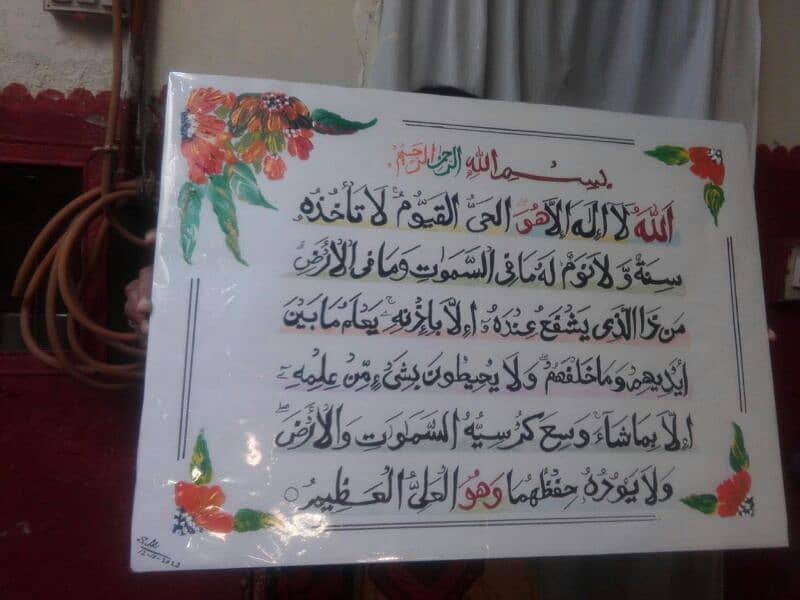 بسم الله الرحمن الرحيم
اَللّٰهُ لَا اِلٰهَ اِلَّا هُوَ الْحَيُّ الْقَيُّوْمُ لَا تَأْخُذُهٗ
سِنَةٌ وَّلَا نَوْمٌ لَهٗ مَا فِي السَّمٰوٰتِ وَمَا فِي الْاَرْضِ
مَنْ ذَا الَّذِيْ يَشْفَعُ عِنْدَهٗٓ اِلَّا بِاِذْنِهٖ يَعْلَمُ مَا بَيْنَ
اَيْدِيْهِمْ وَمَا خَلْفَهُمْ وَلَا يُحِيْطُوْنَ بِشَيْءٍ مِّنْ عِلْمِهٖٓ
اِلَّا بِمَا شَآءَ وَسِعَ كُرْسِيُّهُ السَّمٰوٰتِ وَالْاَرْضَ
وَلَا يَئُوْدُهٗ حِفْظُهُمَا وَهُوَ الْعَلِيُّ الْعَظِيْمُ